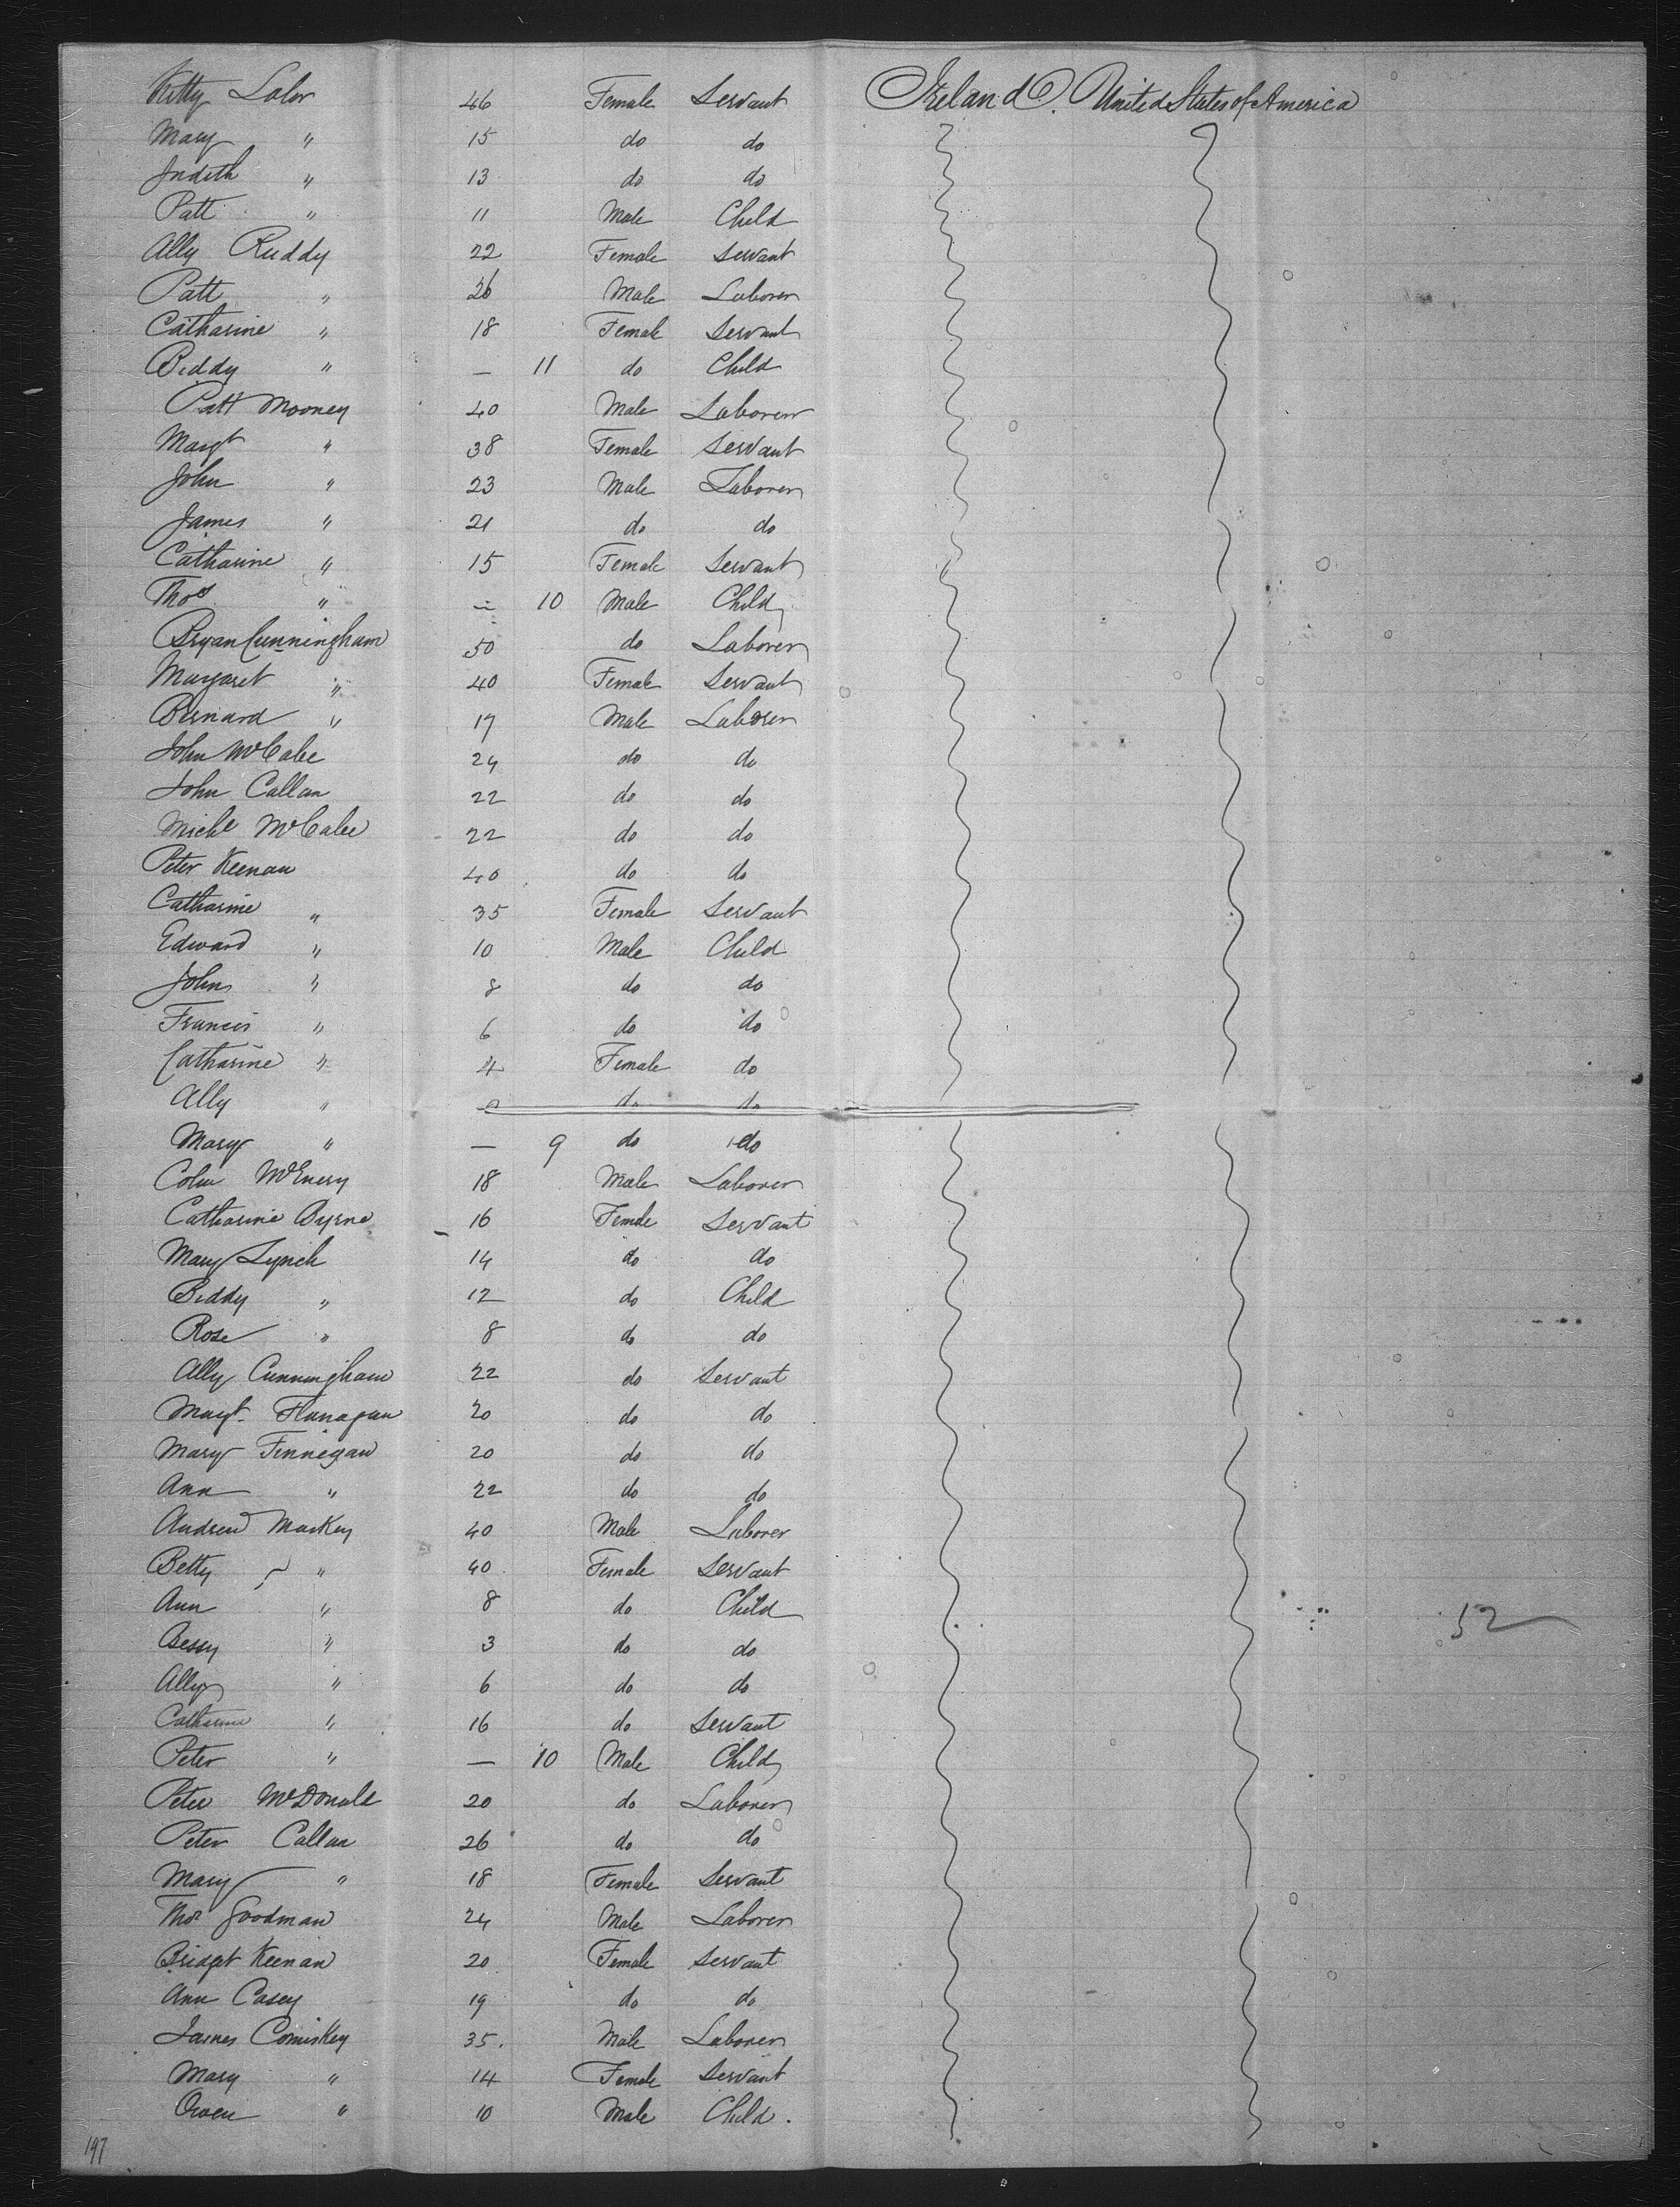 Kitty Lalor 46 Female Servant Ireland. United States of America
Mary " 15 do do
Judith " 13 do do
Patt " 11 Male Child
Ally Ruddy 22 Female Servant
Patt " 26 Male Laborer
Catharine " 18 Female Servant
Biddy " — 11 do Child
Patt Mooney 40 Male Laborer
Margt " 38 Female Servant
John " 23 Male Laborer
James " 21 do do
Catharine " 15 Female Servant
Thos " — 10 Male Child
Bryan Cunningham 50 do Laborer
Margaret " 40 Female Servant
Bernard " 17 Male Laborer
John McCabe 24 do do
John Callan 22 do do
Michl McCabe 22 do do
Peter Keenan 40 do do
Catharine " 35 Female Servant
Edward " 10 Male Child
John " 8 do do
Francis " 6 do do
Catharine " 4 Female do
Ally " do do
Mary " — 9 do do
Colm McEnery 18 Male Laborer
Catharine Byrne 16 Female Servant
Mary Lynch 14 do do
Biddy " 12 do Child
Rose " 8 do do
Ally Cunningham 22 do Servant
Margt. Flanagan 20 do do
Mary Finnegan 20 do do
Ann " 22 do do
Andrew Markey 40 Male Laborer
Betty " 40 Female Servant
Ann " 8 do Child 52
Bessy " 3 do do
Ally " 6 do do
Catharine " 16 do Servant
Peter " — 10 Male Child
Peter McDonald 20 do Laborer
Peter Callan 26 do do
Mary " 18 Female Servant
Thos Goodman 24 Male Laborer
Bridget Keenan 20 Female Servant
Ann Casey 19 do do
James Comiskey 35. Male Laborer
Mary " 14 Female Servant
Owen " 10 Male Child.
197